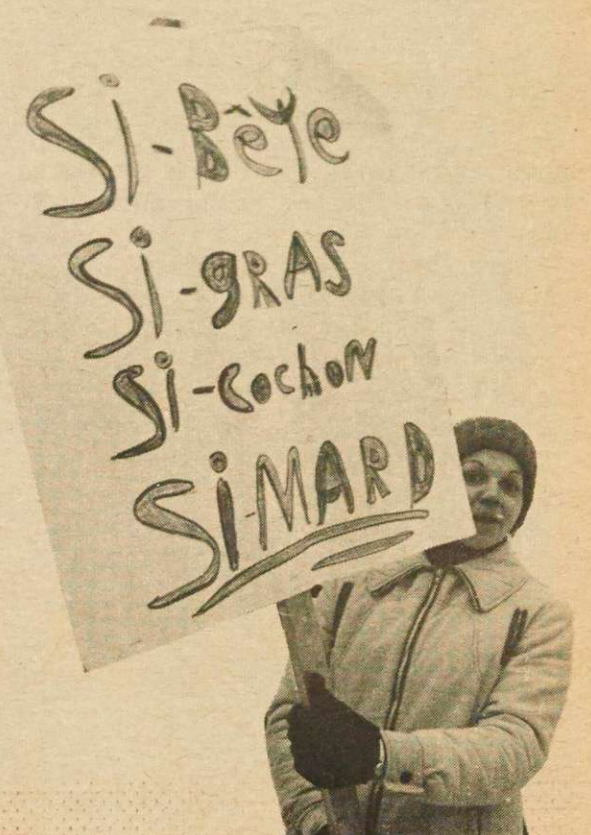 Si-BêYe
Si-gRAS
Si-cochoN
Si-MARD